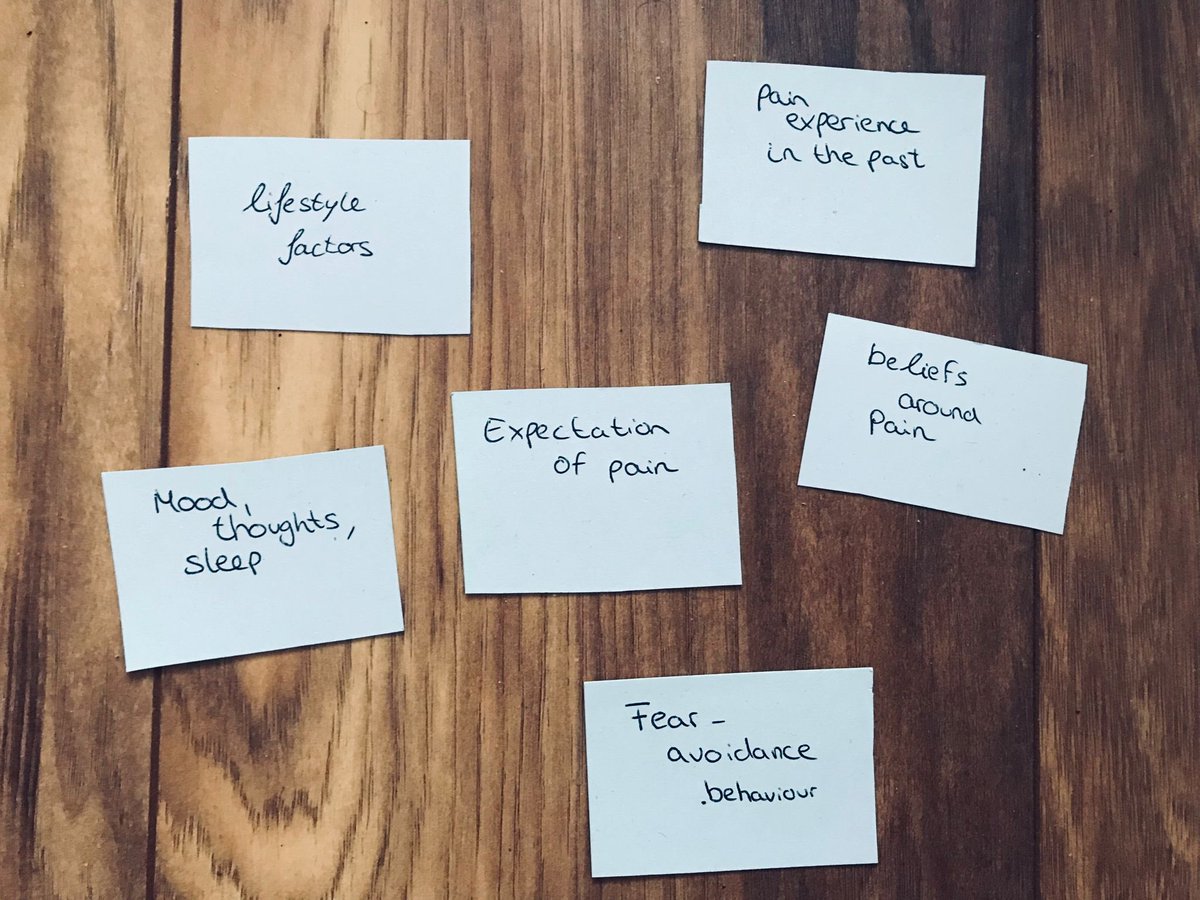 lifestyle
factors
Pain
experience
in the past
Mood,
thoughts,
sleep
Expectation
of pain
beliefs
around
Pain
Fear -
avoidance
behaviour